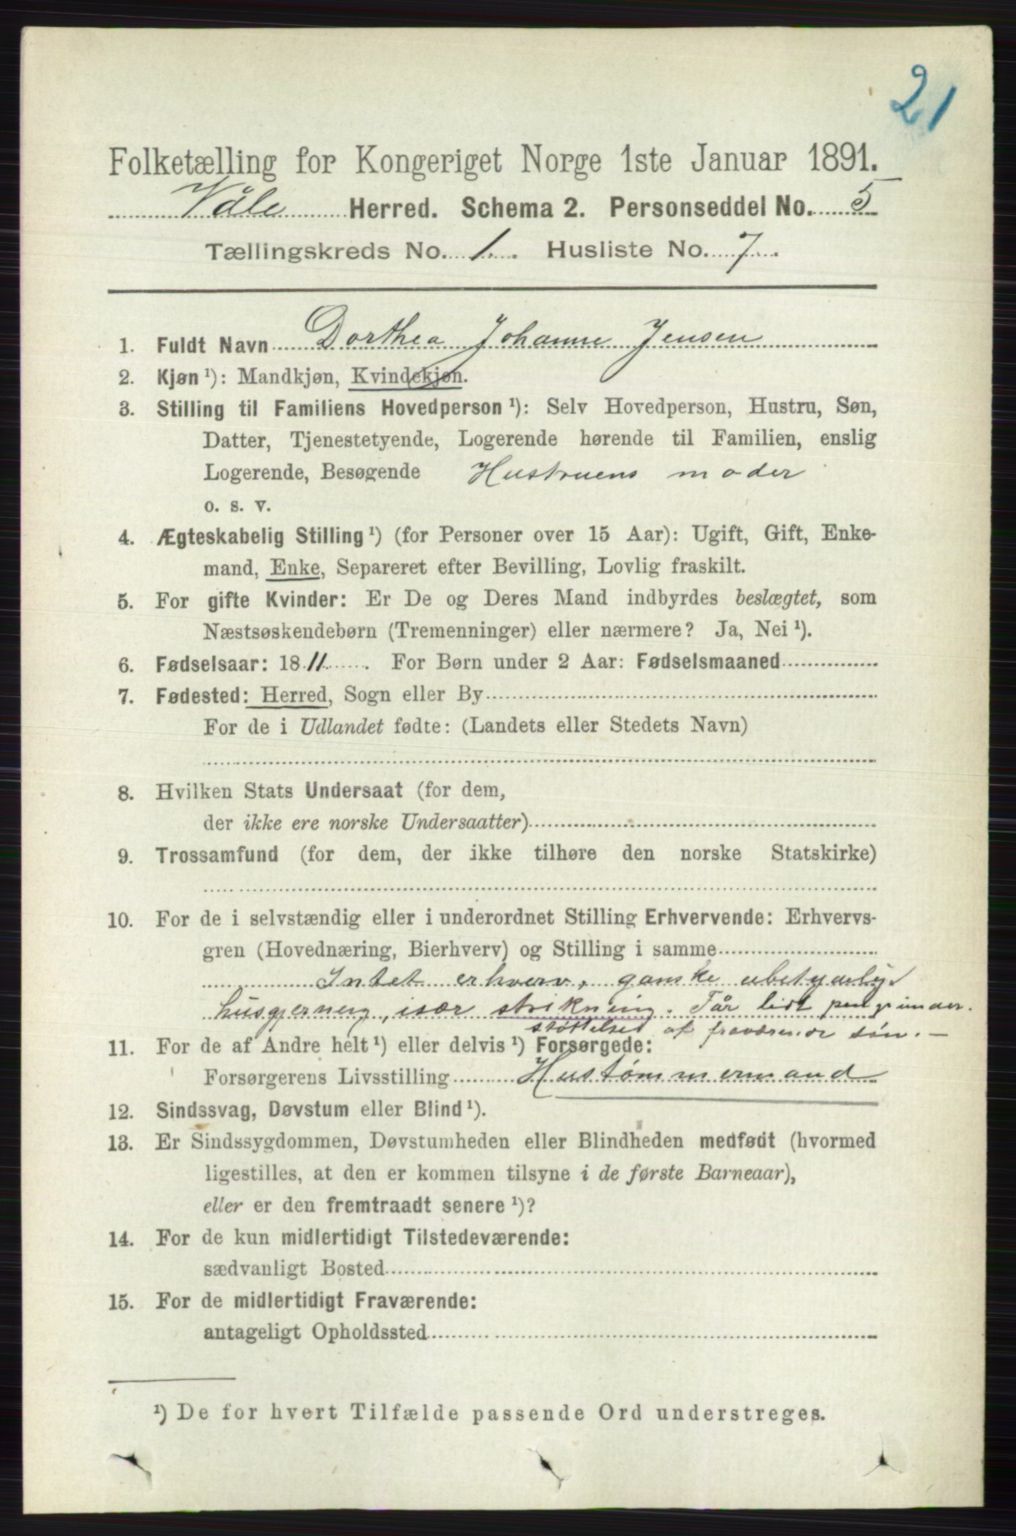 21
Folketælling for Kongeriget Norge 1ste Januar 1891.
Våle Herred. Schema 2. Personseddel No. 5
Tællingskreds No. 1. Husliste No. 7.
1. Fuldt Navn Dorthea Johanne Jensen
2. Kjøn ¹): Mandkjøn, Kvindekjøn.
3. Stilling til Familiens Hovedperson ¹): Selv Hovedperson, Hustru, Søn,
Datter, Tjenestetyende, Logerende hørende til Familien, enslig
Logerende, Besøgende Hustruens moder
o. s. v.
4. Ægteskabelig Stilling ¹) (for Personer over 15 Aar): Ugift, Gift, Enke-
mand, Enke, Separeret efter Bevilling, Lovlig fraskilt.
5. For gifte Kvinder: Er De og Deres Mand indbyrdes beslægtet, som
Næstsøskendebørn (Tremenninger) eller nærmere? Ja, Nei ¹).
6. Fødselsaar: 1811. For Børn under 2 Aar: Fødselsmaaned
7. Fødested: Herred, Sogn eller By
For de i Udlandet fødte: (Landets eller Stedets Navn)
8. Hvilken Stats Undersaat (for dem,
der ikke ere norske Undersaatter)
9. Trossamfund (for dem, der ikke tilhøre den norske Statskirke)
10. For de i selvstændig eller i underordnet Stilling Erhvervende: Erhvervs-
gren (Hovednæring, Bierhverv) og Stilling i samme
Intet erhverv, ganske ubetydelig
husgjerning, især strikning. Får lidt penge under-
støttelse af fraværende søn. —
11. For de af Andre helt ¹) eller delvis ¹) Forsørgede:
Forsørgerens Livsstilling Hustømmermand
12. Sindssvag, Døvstum eller Blind ¹).
13. Er Sindssygdommen, Døvstumheden eller Blindheden medfødt (hvormed
ligestilles, at den er kommen tilsyne i de første Barneaar),
eller er den fremtraadt senere ¹)?
14. For de kun midlertidigt Tilstedeværende:
sædvanligt Bosted
15. For de midlertidigt Fraværende:
antageligt Opholdssted
¹) De for hvert Tilfælde passende Ord understreges.